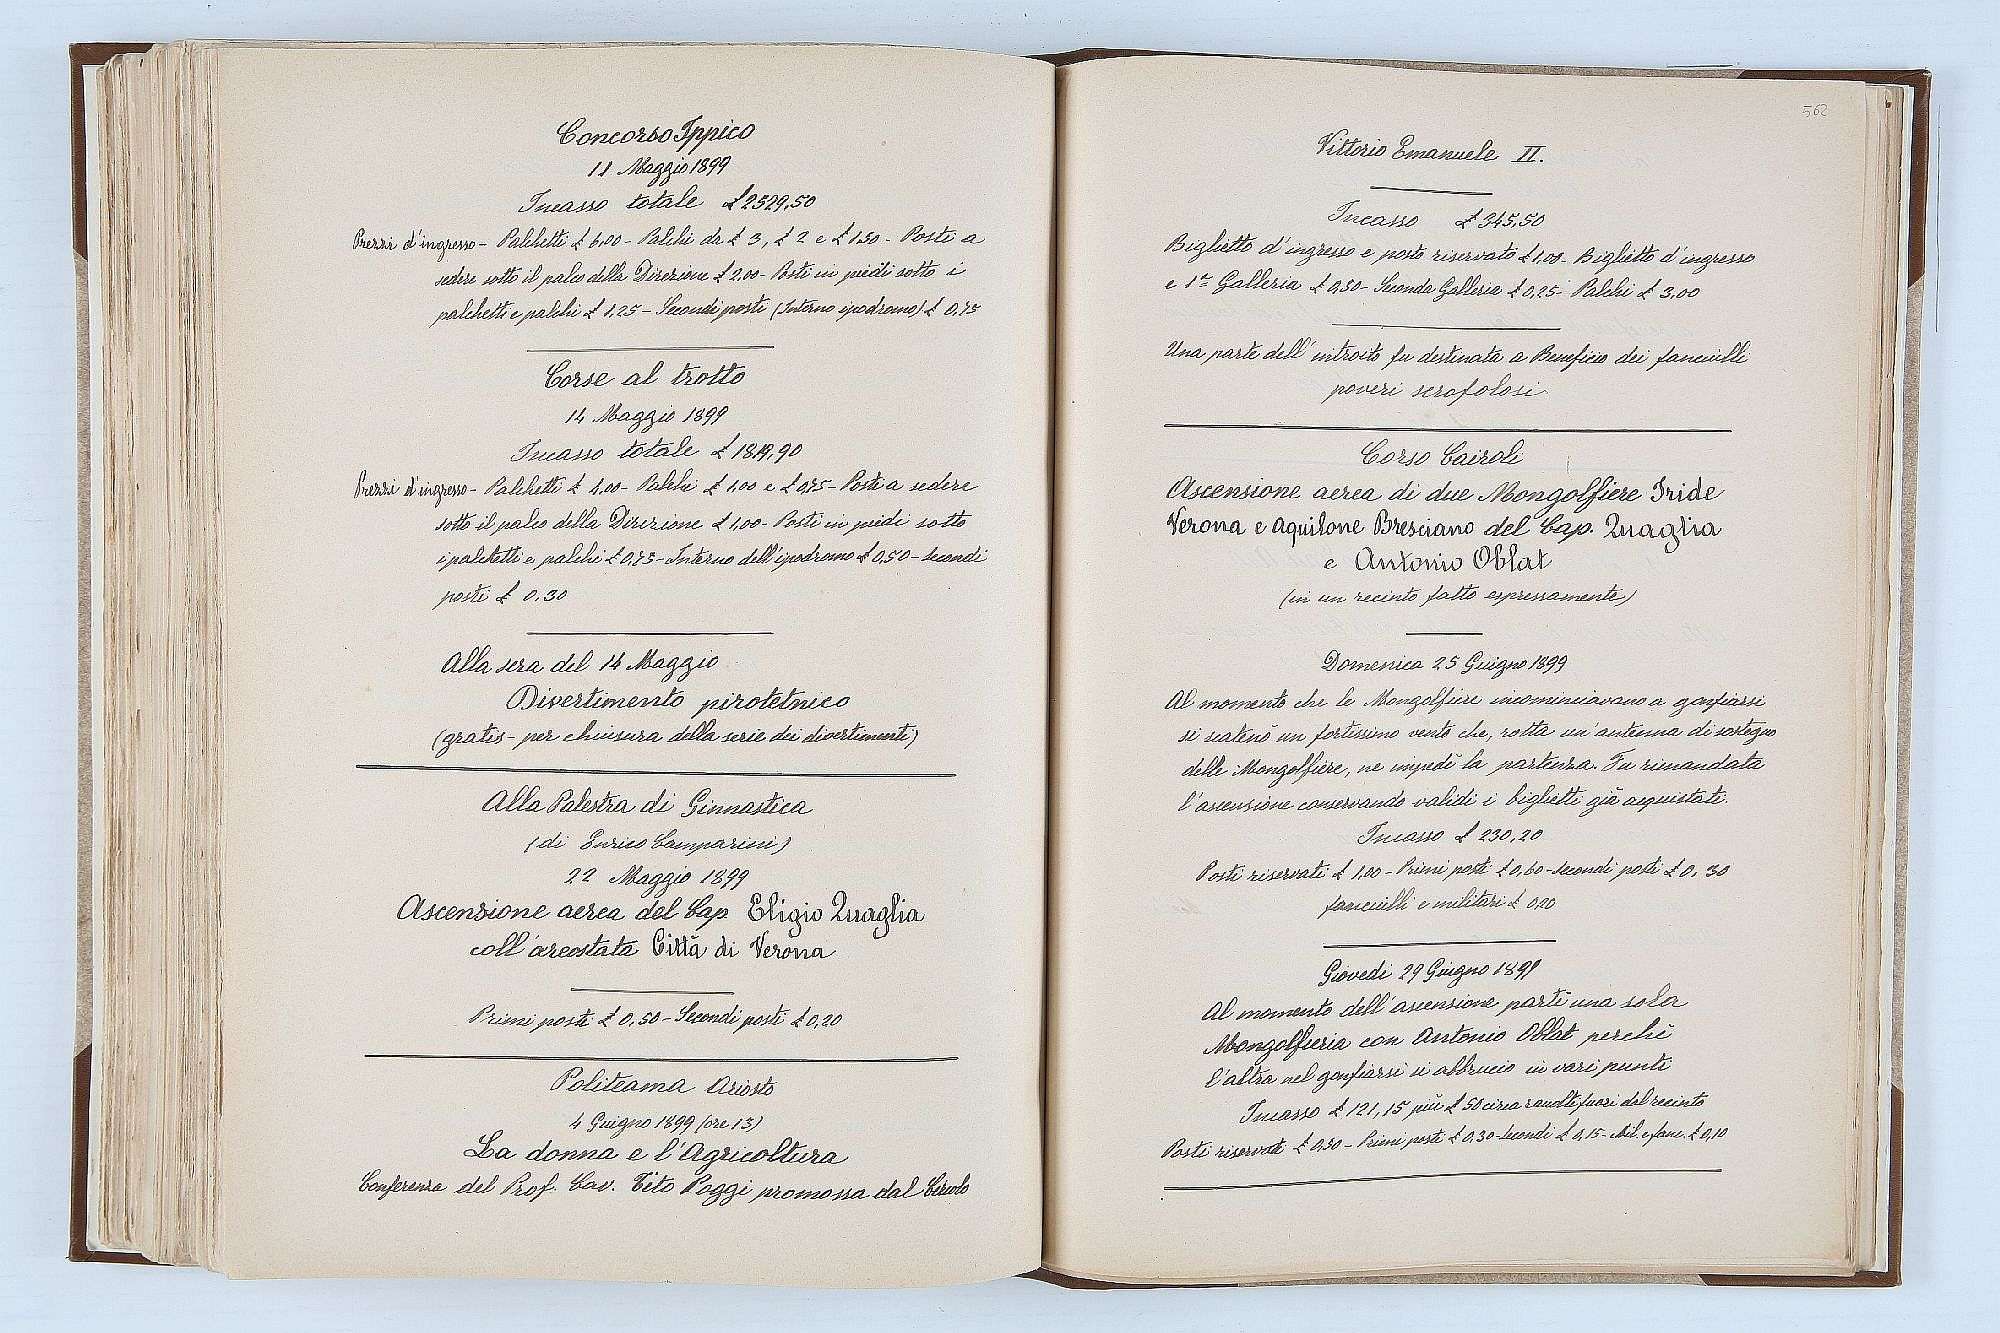 Concorso Ippico
11 Maggio 1899
Incasso totale £ 2529,50
Prezzi d'ingresso - Palchetti £ 6,00 - Palchi da £ 3, £ 2 e £ 1,50 - Posti a
sedere sotto il palco della Direzione £ 2,00 - Posti in piedi sotto i
palchetti e palchi £ 1,25 - Secondi posti (Interno ipodromo) £ 0,75
Corse al trotto
14 Maggio 1899
Incasso totale £ 1819,90
Prezzi d'ingresso - Palchetti £ 4,00 - Palchi £ 1,00 e £ 0,75 - Posti a sedere
sotto il palco della Direzione £ 1,00 - Posti in piedi sotto
i palchetti e palchi £ 0,75 - Interno dell'ipodromo £ 0,50 - Secondi
posti £ 0,30
Alla sera del 14 Maggio
Divertimento pirotetnico
(gratis - per chiusura della serie dei divertimenti)
Alla Palestra di Ginnastica
(di Enrico Camparini)
22 Maggio 1899
Ascensione aerea del Cap Eligio Quaglia
coll'areostata Città di Verona
Primi posti £ 0,50 - Secondi posti £ 0,20
Politeama Ariosto
4 Giugno 1899 (ore 13)
La donna e l'Agricoltura
Conferenza del Prof. Cav. Tito Poggi promossa dal Circolo
562
Vittorio Emanuele II.
Incasso £ 345,50
Biglietto d'ingresso e posto riservato £ 1,00 - Biglietto d'ingresso
e 1ª Galleria £ 0,50 - Seconda Galleria £ 0,25 - Palchi £ 3,00
Una parte dell'introito fu destinata a Beneficio dei fanciulli
poveri scrofolosi.
Corso Cairoli
Ascensione aerea di due Mongolfiere Iride
Verona e Aquilone Bresciano del Cap. Quaglia
e Antonio Oblat
(in un recinto fatto espressamente)
Domenica 25 Giugno 1899
Al momento che le Mongolfiere incominciavano a gonfiarsi
si scatenò un fortissimo vento che, rotta un'antenna di sostegno
delle Mongolfiere, ne impedì la partenza. Fu rimandata
l'ascensione conservando validi i biglietti già acquistati.
Incasso £ 230,20
Posti riservati £ 1,00 - Primi posti £ 0,60 - Secondi posti £ 0,30
fanciulli e militari £ 0,20
Giovedì 29 Giugno 1899
Al momento dell'ascensione partì una sola
Mongolfieria con Antonio Oblat perchè
l'altra nel gonfiarsi si abbruciò in vari punti
Incasso £ 121,15 più £ 50 circa raccolte fuori dal recinto
Posti riservati £ 0,50 - Primi posti £ 0,30 - Secondi £ 0,15 - Mil. e fanc. £ 0,10